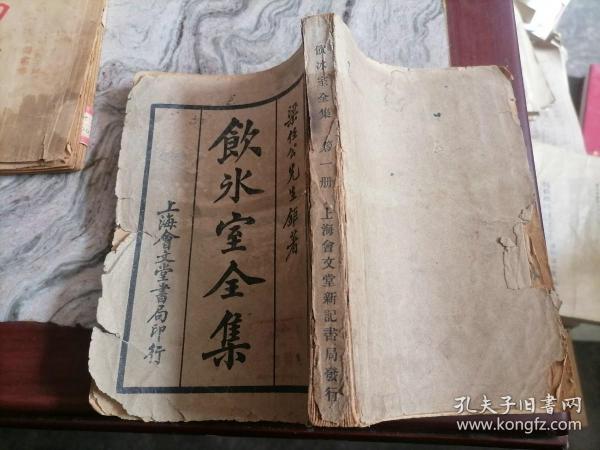 梁任公先生離著
飲冰室全集
上海會文堂書局印行
飲冰室全集 第一册 上海會文堂新記書局發行
孔夫子旧书网
kongfz.com